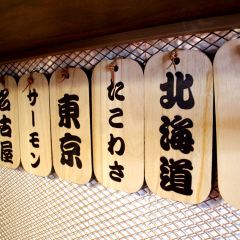 名古屋
サーモン
東京
たこわさ
北海道